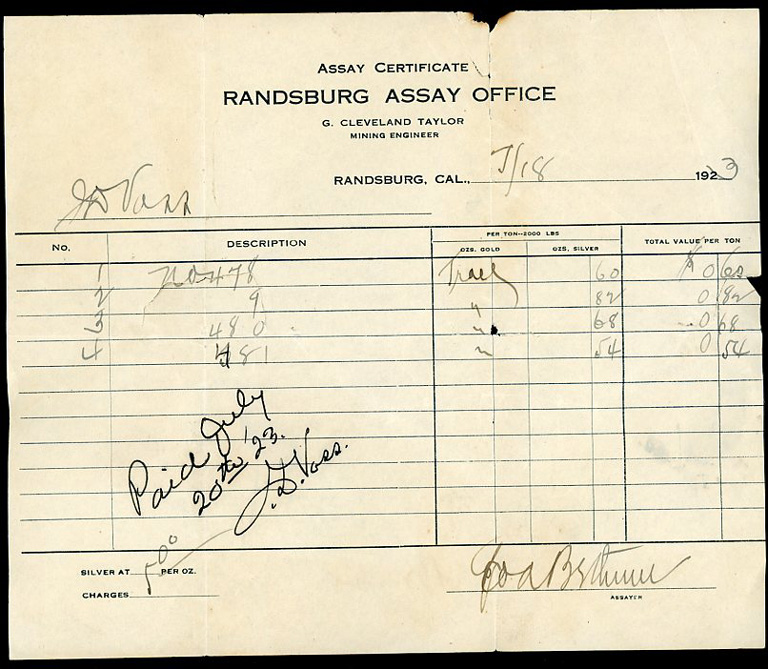 ASSAY CERTIFICATE
RANDSBURG ASSAY OFFICE
G. CLEVELAND TAYLOR
MINING ENGINEER
RANDSBURG, CAL., 7/18 1923
J D Voss
PER TON--2000 LBS
No. DESCRIPTION OZS. GOLD OZS. SILVER TOTAL VALUE PER TON
1 No 478 Trace 60 $ 0 60
2 9 " 82 0 82
3 480 " 68 0 68
4 481 " 54 0 54
Paid July
20th '23.
J.D. Voss.
SILVER AT PER OZ.
CHARGES 5 00
ASSAYER